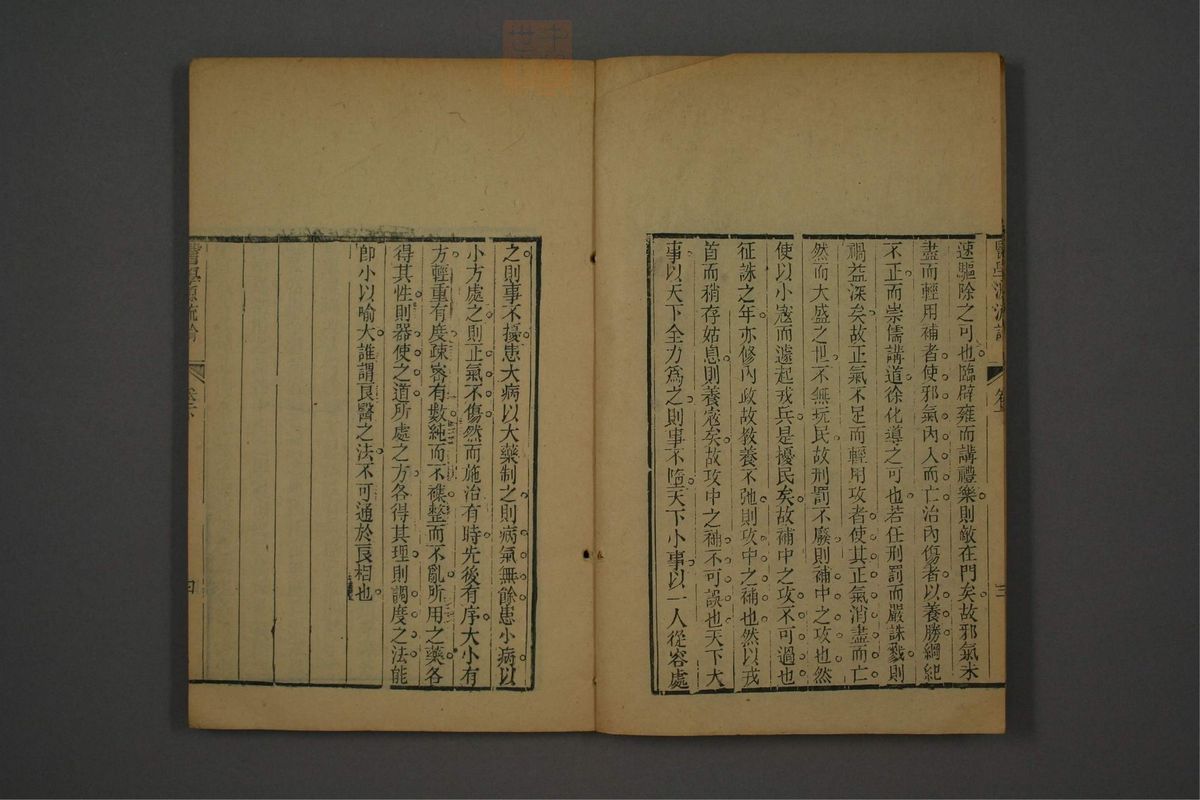 醫學源流論
卷
三
速驅除之可也臨辟雍而講禮樂則敵在門矣故邪氣未
盡而輕用補者使邪氣內入而亡治內傷者以養勝綱紀
不正而崇儒講道徐化導之可也若任刑罰而嚴誅戮則
禍益深矣故正氣不足而輕用攻者使其正氣消盡而亡
然而大盛之世不無玩民故刑罰不廢則補中之攻也然
使以小寇而遽起戎兵是擾民矣故補中之攻不可過也
征誅之年亦修內政故教養不弛則攻中之補也然以戎
首而稍存姑息則養寇矣故攻中之補不可誤也天下大
事以天下全力爲之則事不墮天下小事以一人從容處
之則事不擾患大病以大藥制之則病氣無餘患小病以
小方處之則正氣不傷然而施治有時先後有序大小有
方輕重有度疎密有數純而不襍整而不亂所用之藥各
得其性則器使之道所處之方各得其理則調度之法能
卽小以喻大誰謂良醫之法不可通於良相也
醫學源流論
卷六
四